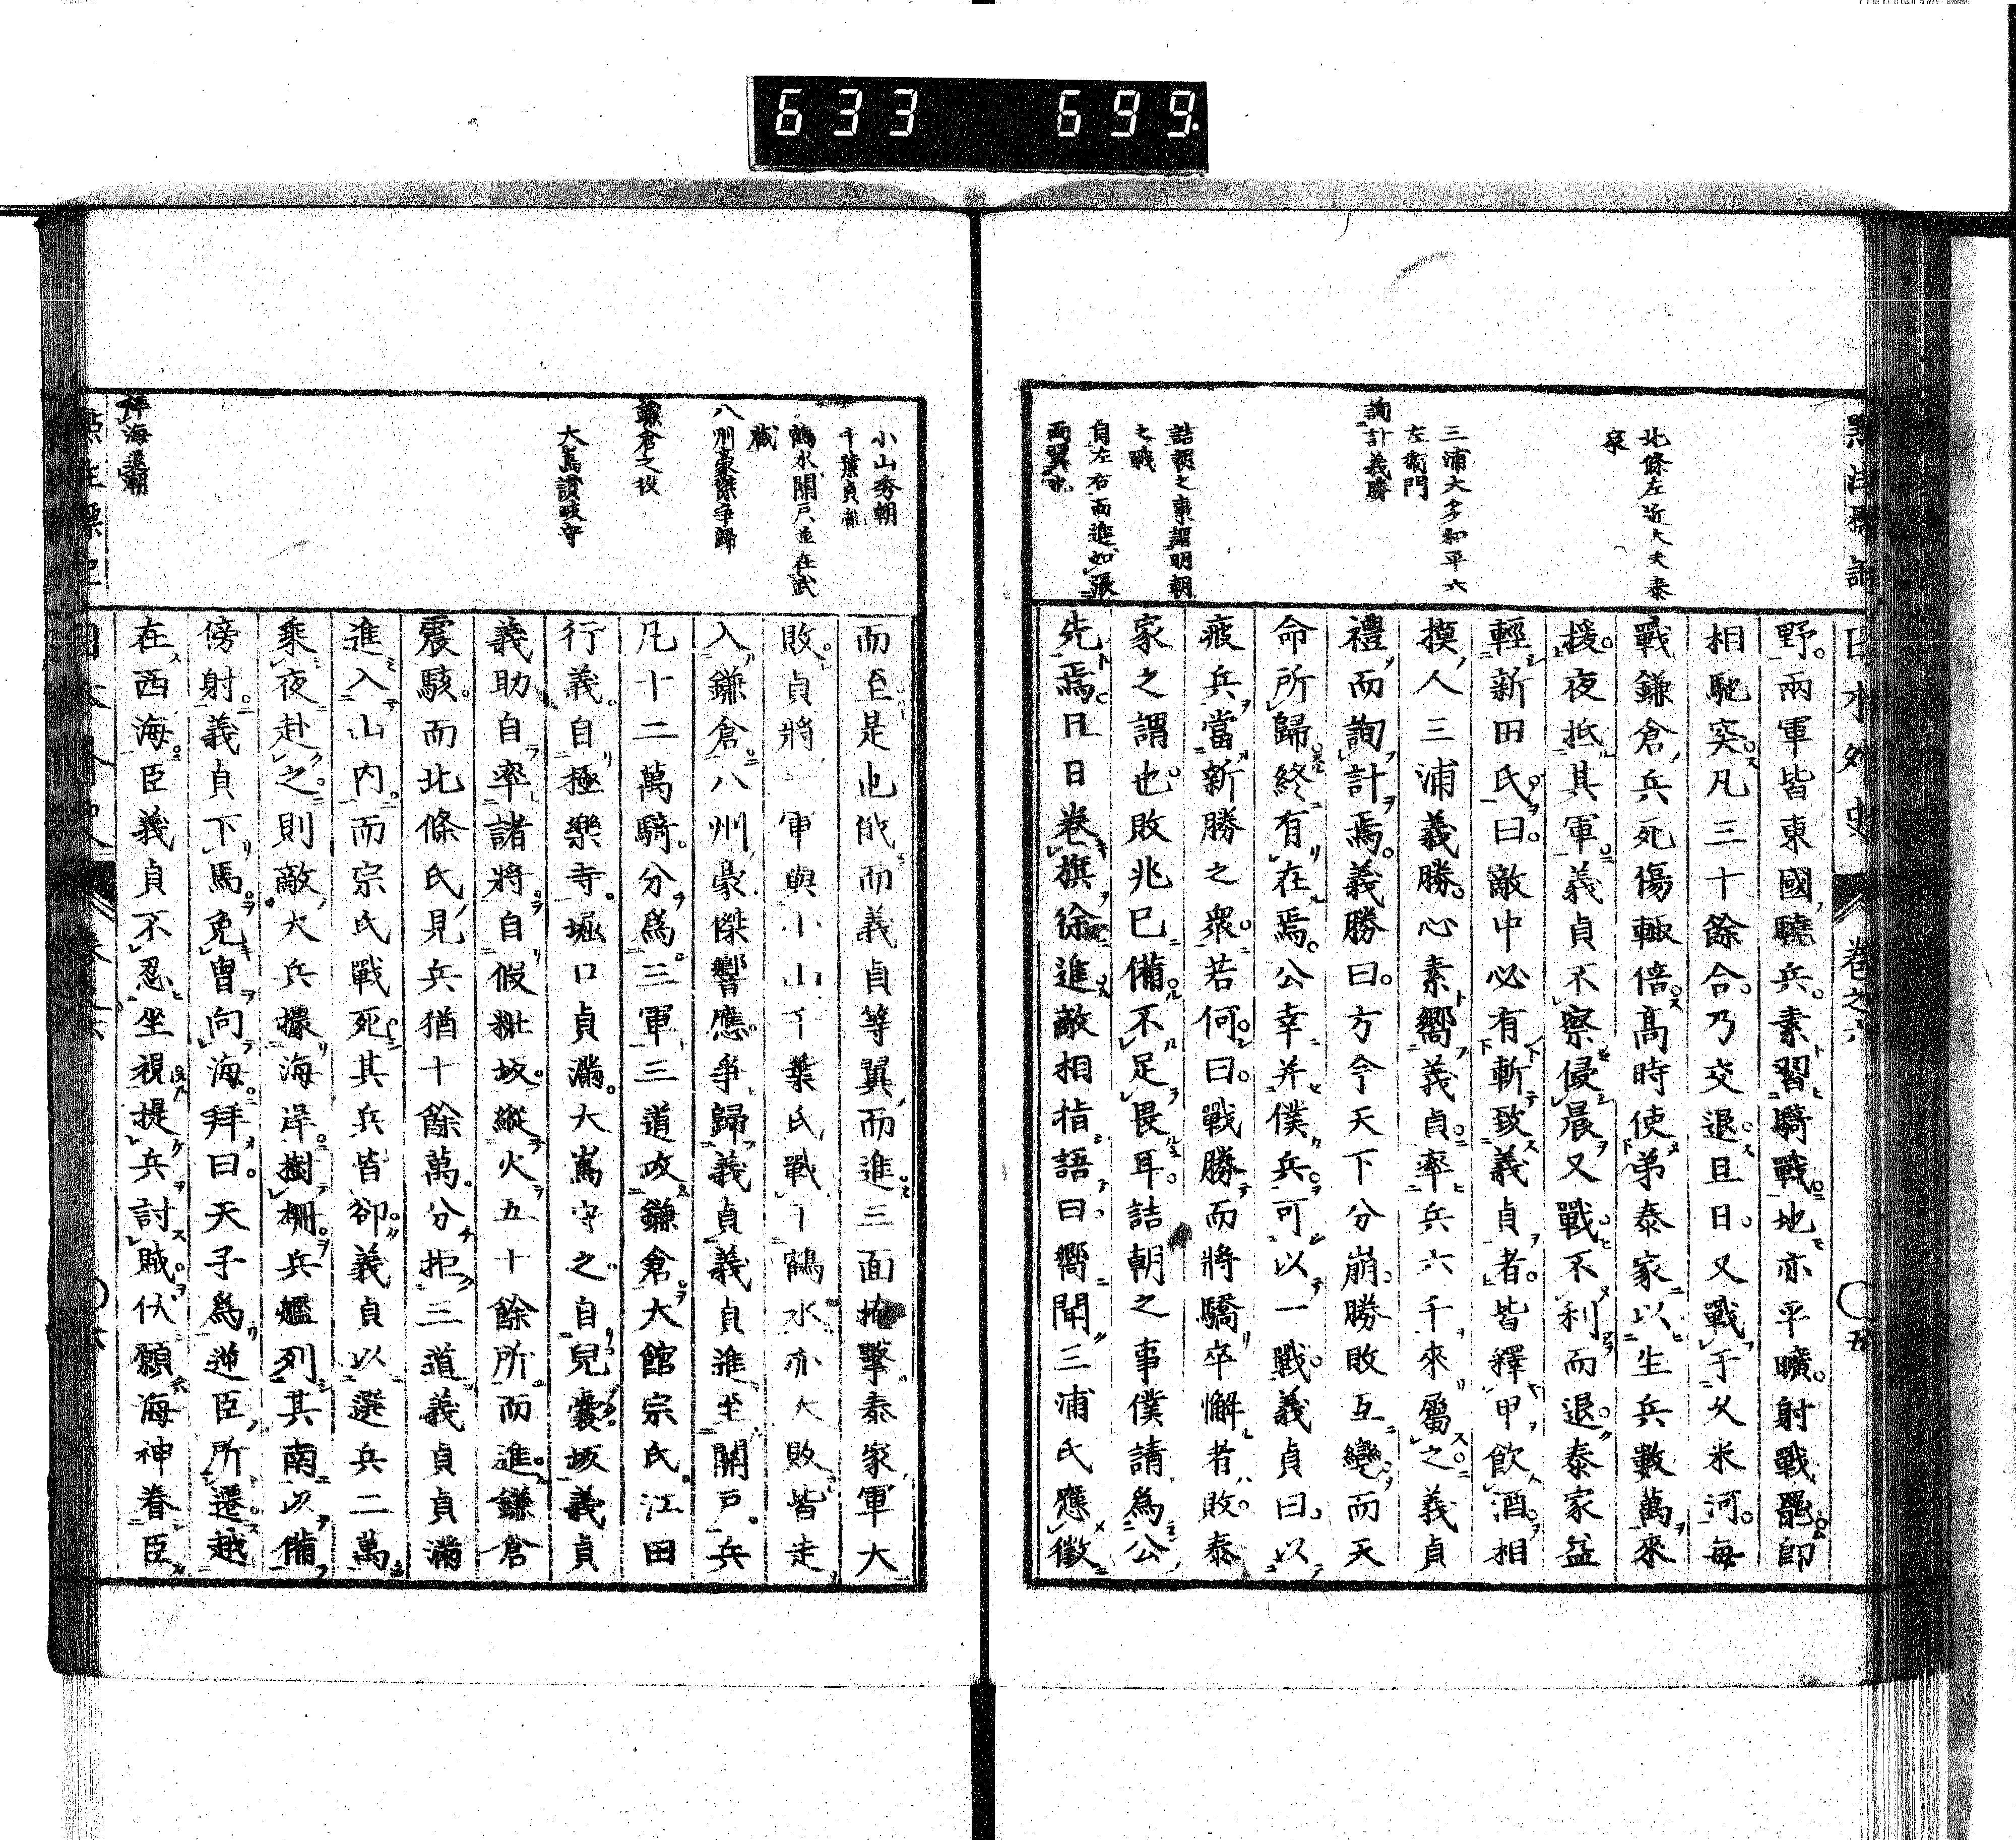 633 699.
日本外史 卷之六 五
北條左近大夫泰
家
三浦大多和平六
左衛門
詢計義勝
詰朝之事謂明朝
之戰
自左右而進如張
兩翼也
野兩軍皆東國驍兵素習騎戰地亦平曠射戰罷即
相馳突凡三十餘合乃交退旦日又戰于久米河每
戰鎌倉兵死傷輙倍高時使弟泰家以生兵數萬來
援夜抵其軍義貞不察侵晨又戰不利而退泰家益
輕新田氏曰敵中必有斬致義貞者皆釋甲飲酒相
摸人三浦義勝心素嚮義貞率兵六千來屬之義貞
禮而詢計焉義勝曰方今天下分崩勝敗互變而天
命所歸終有在焉公幸并僕兵可以一戰義貞曰以
疲兵當新勝之衆若何曰戰勝而將驕卒懈者敗泰
家之謂也敗兆已備不足畏耳詰朝之事僕請爲公
先焉旦日卷旗徐進敵相指語曰嚮聞三浦氏應徵
小山秀朝
千葉貞胤
鶴水關戸並在武
藏
八州豪傑爭歸
鎌倉之役
大嶌讃岐守
拜海退潮
而至是也俄而義貞等翼而進三面掩擊泰家軍大
敗貞將一軍與小山千葉氏戰于鶴水亦大敗皆走
入鎌倉八州豪傑響應爭歸義貞義貞進至關戸兵
凡十二萬騎分爲三軍三道攻鎌倉大館宗氏江田
行義自極樂寺堀口貞滿大嶌守之自兒囊坂義貞
義助自率諸將自假粧坂縱火五十餘所而進鎌倉
震駭而北條氏見兵猶十餘萬分拒三道義貞貞滿
進入山内而宗氏戰死其兵皆卻義貞以選兵二萬
乘夜赴之則敵大兵據海岸樹柵兵艦列其南以備
傍射義貞下馬免冑向海拜曰天子爲逆臣所遷越
在西海臣義貞不忍坐視提兵討賊伏願海神眷臣